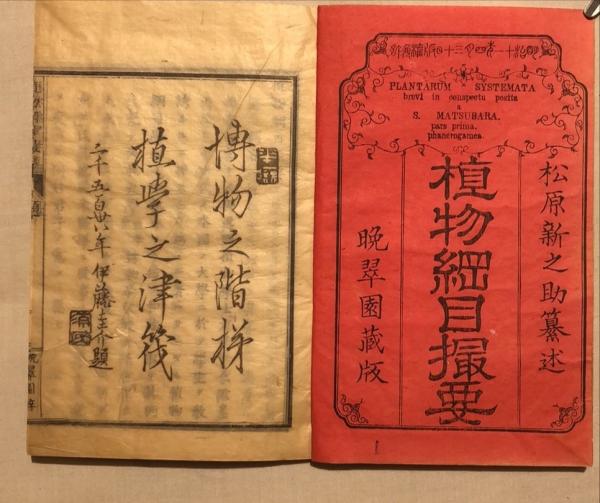 明治十一年四月三十日版權免許
PLANTARUM SYSTEMATA
brevi in conspectu posita
a
S. MATSUBARA.
pars prima.
phanerogamea.
松原新之助纂述
植物綱目撮要
晩翠園藏版
博物之階梯
植學之津筏
二千五百卅八年 伊藤圭介題